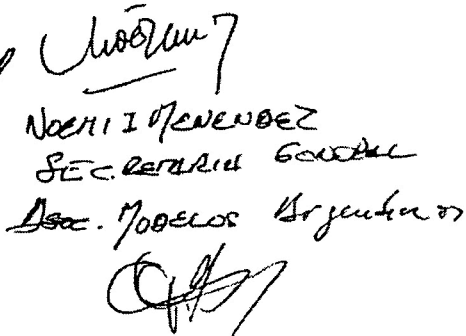 NOEMI I MENENDEZ
SECRETARIA GENERAL
Asoc. MODELOS Argentinos